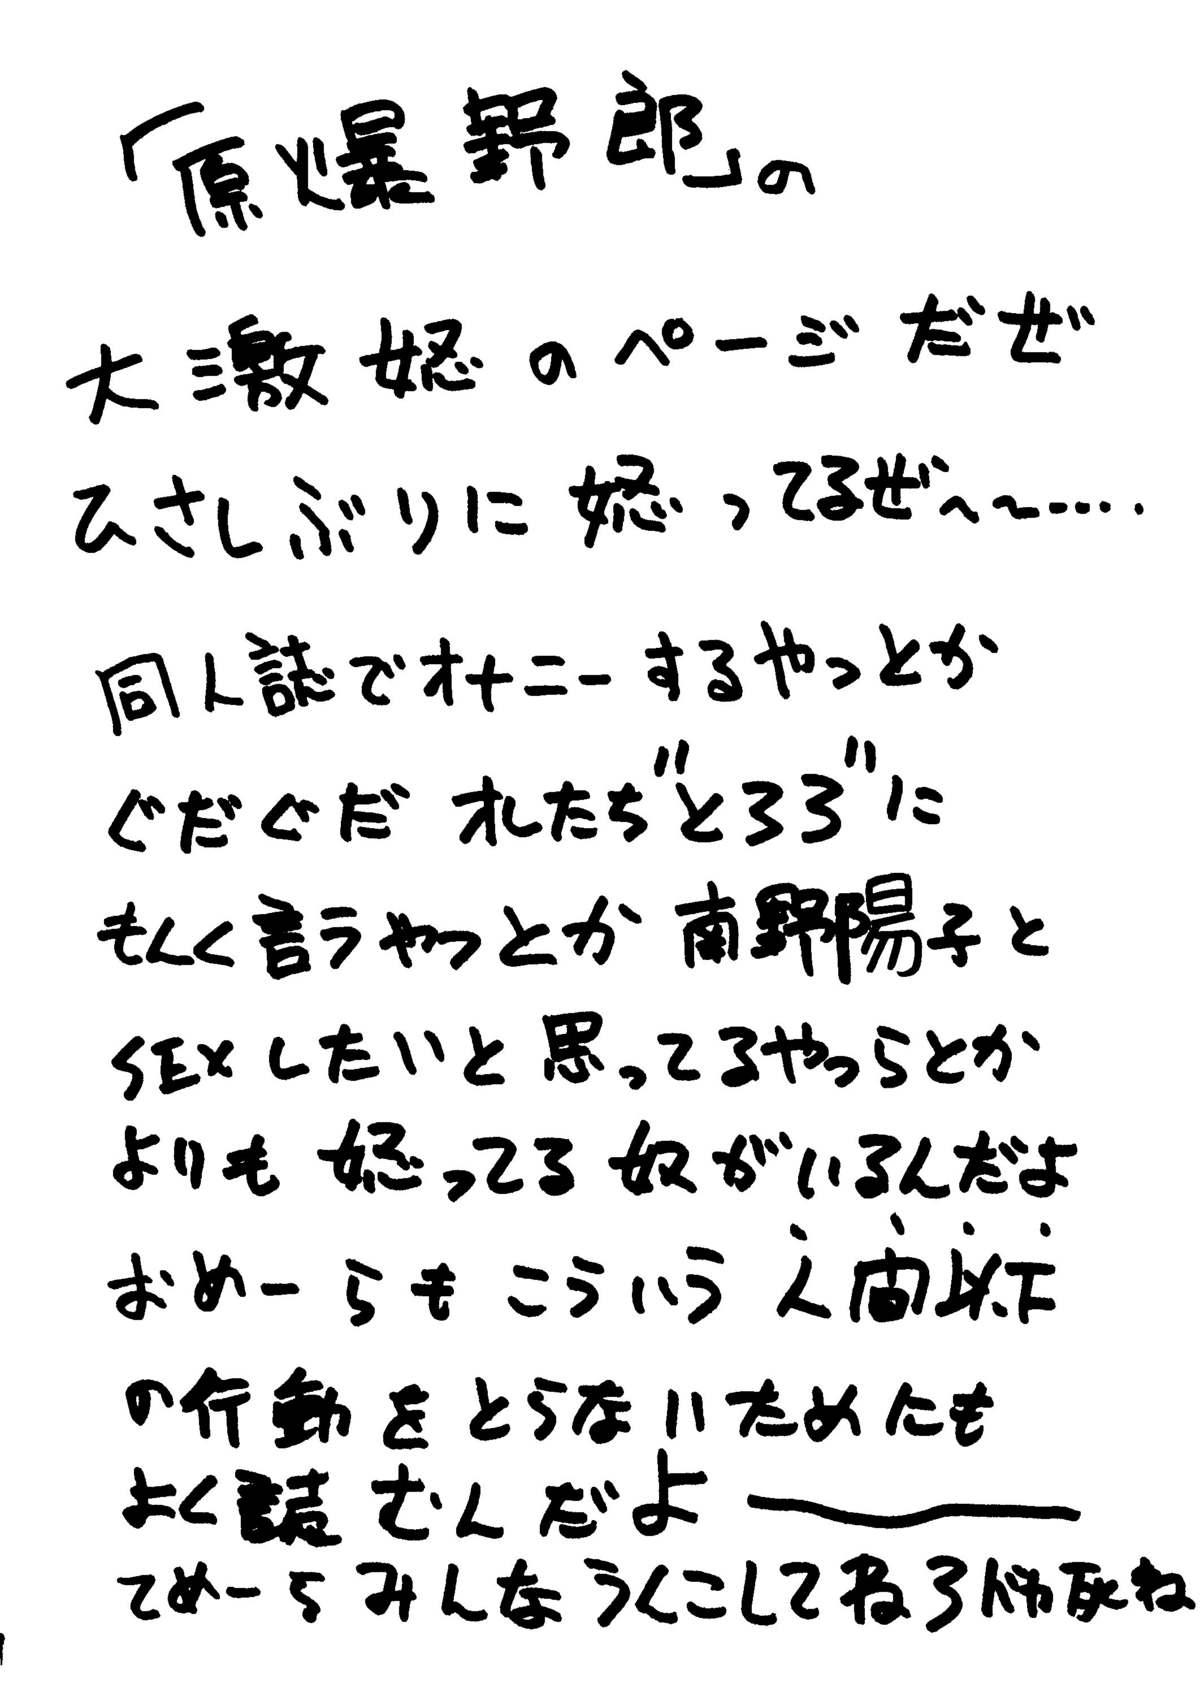 「原爆野郎」の
大激怒のページだぜ
ひさしぶりに怒ってるぜへ〜‥‥
同人誌でオナニーするやつとか
ぐだぐだオレたち"とろろ"に
もんく言うやつとか南野陽子と
SEXしたいと思ってるやつらとか
よりも怒ってる奴がいるんだよ
おめーらもこういう人間以下
の行動をとらないためにも
よく読むんだよ――
てめーらみんなうんこしてねろバカ死ね